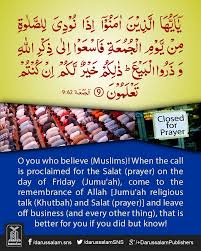 يَٰٓأَيُّهَا ٱلَّذِينَ ءَامَنُوٓا۟ إِذَا نُودِىَ لِلصَّلَوٰةِ
مِن يَوْمِ ٱلْجُمُعَةِ فَٱسْعَوْا۟ إِلَىٰ ذِكْرِ ٱللَّهِ
وَذَرُوا۟ ٱلْبَيْعَ ۚ ذَٰلِكُمْ خَيْرٌ لَّكُمْ إِن كُنتُمْ
تَعْلَمُونَ ٩ الجمعة 9:62
Closed
for
Prayer
O you who believe (Muslims)! When the call
is proclaimed for the Salat (prayer) on the
day of Friday (Jumu'ah), come to the
remembrance of Allah [Jumu'ah religious
talk (Khutbah) and Salat (prayer)] and leave
off business (and every other thing), that is
better for you if you did but know!
/darussalam.sns
/darussalamSNS
/+DarussalamPublishers